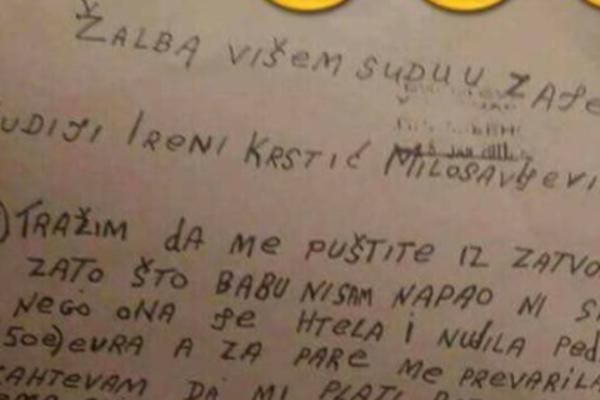 ŽALBA VIŠEM SUDU U ZAJE
UDIJI IRENI KRSTIĆ MILOSAVLJEVI
)TRAŽIM DA ME PUŠTITE IZ ZATVO
ZATO ŠTO BABU NISAM NAPAO NI S
NEGO ONA JE HTELA I NUDILA PED
50e)EURA A ZA PARE ME PREVARILA
AHTEVAM DA MI PLATI